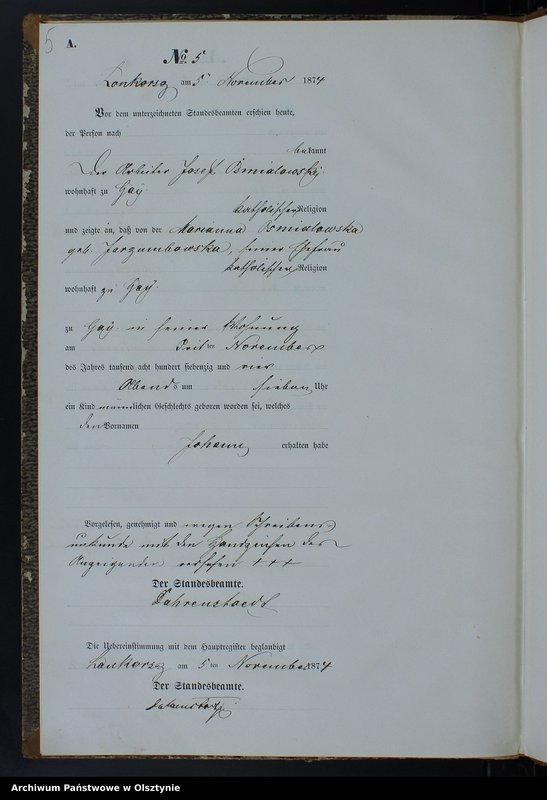 5
A.
No. 5
Lonkorsz am 5 November 1874
Vor dem unterzeichneten Standesbeamten erschien heute,
der Person nach
bekannt
Der Arbeiter Josef Osmialowski
wohnhaft zu Gay
katholischer Religion
und zeigte an, daß von der Marianna Osmialowska
geb. Jarzumbowska, seiner Ehefrau
katholischer Religion
wohnhaft zu Gay.
zu Gay in seiner Wohnung
am ten November
des Jahres tausend acht hundert siebenzig und vier
Abends um sieben Uhr
ein Kind männlichen Geschlechts geboren worden sei, welches
den Vornamen
Johann erhalten habe
Vorgelesen, genehmigt und wegen Schreibens-
unkunde mit den Handzeichen des
Anzeigenden versehen +++
Der Standesbeamte.
Fahrenstaedt
Die Uebereinstimmung mit dem Hauptregister beglaubigt
Lonkorsz am 5 ten November 1874
Der Standesbeamte.
Archiwum Państwowe w Olsztynie